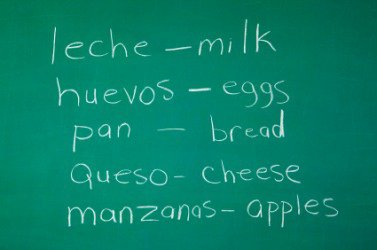 leche - milk
huevos - eggs
pan - bread
queso - cheese
manzanas - apples